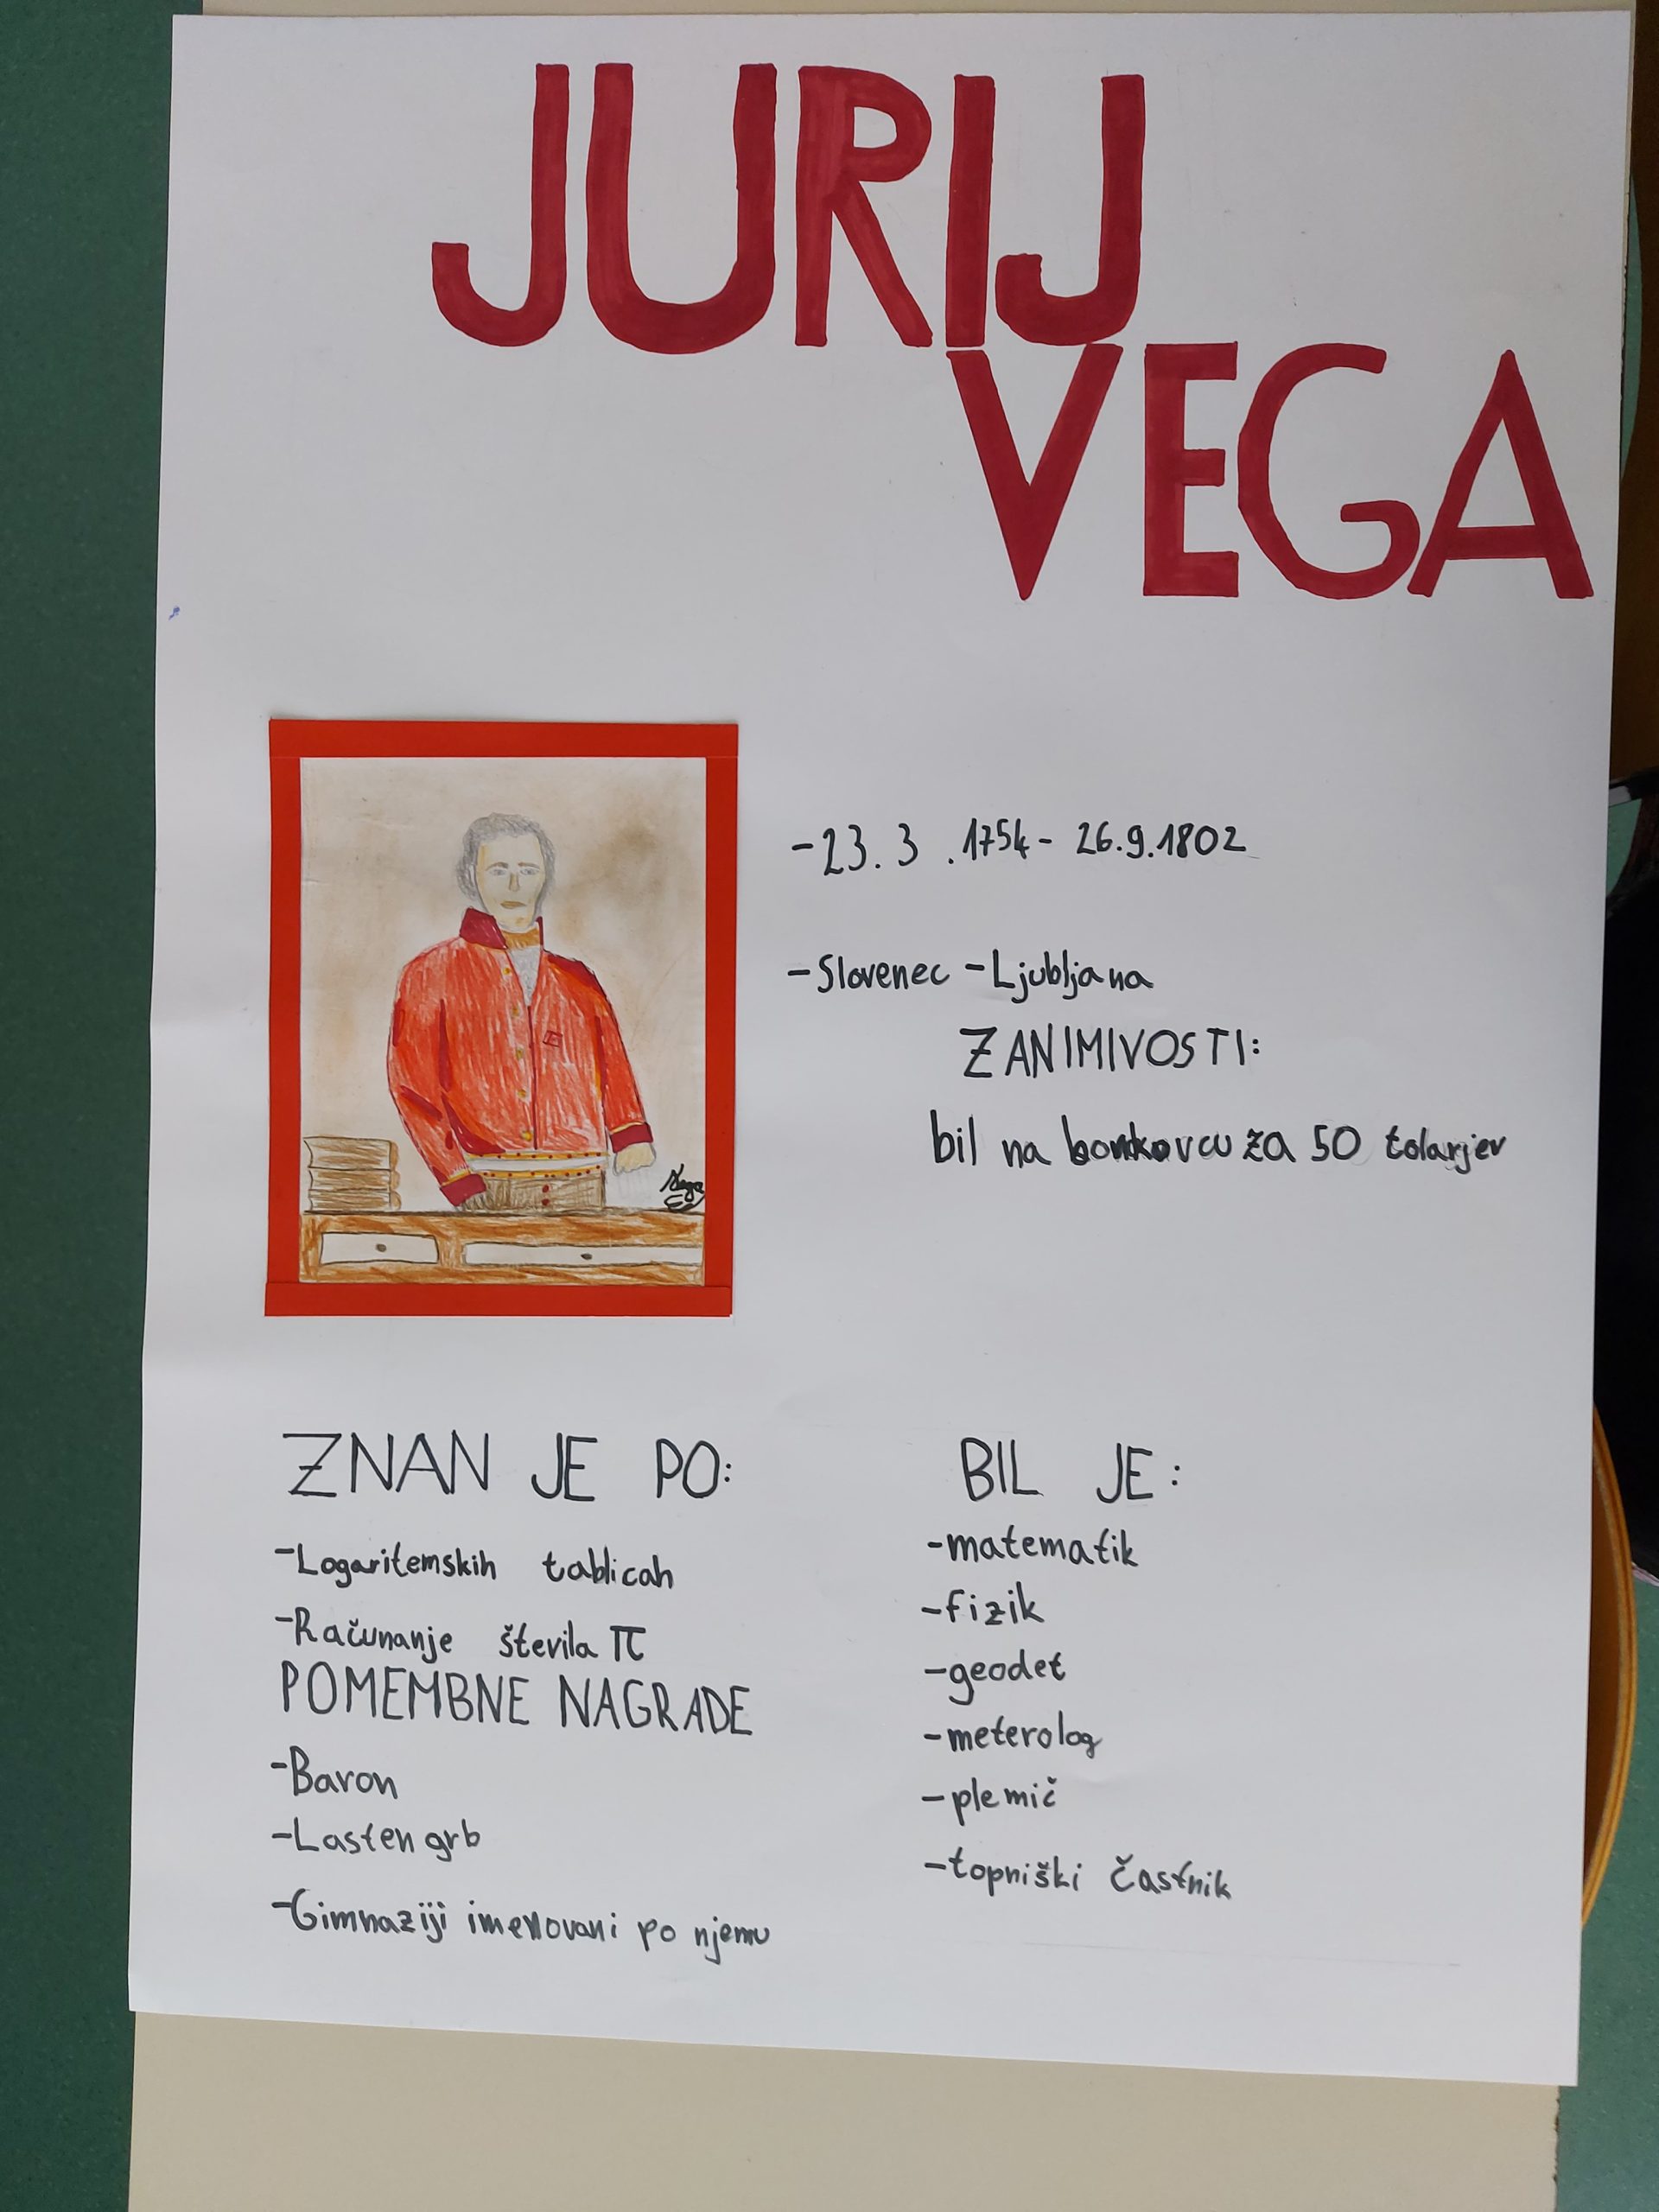 JURIJ
VEGA
-23. 3 .1754- 26.9.1802
-Slovenec -Ljubljana
ZANIMIVOSTI:
bil na bankovcu za 50 tolarjev
Vega
ZNAN JE PO:
-Logaritemskih tablicah
-Računanje števila π
POMEMBNE NAGRADE
-Baron
-Lasten grb
-Gimnaziji imenovani po njemu
BIL JE:
-matematik
-fizik
-geodet
-meterolog
-plemič
-topniški častnik